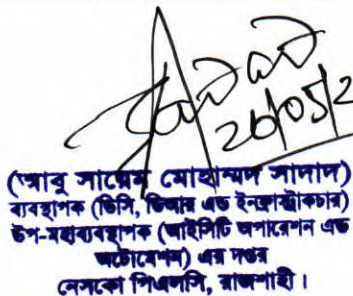 26/05/2
(আবু সায়েম মোহাম্মদ সাদাদ)
ব্যবস্থাপক (ডিসি, ডিআর এন্ড ইনফ্রাস্ট্রাকচার)
উপ-মহাব্যবস্থাপক (আইসিটি অপারেশন এন্ড
অটোমেশন) এর দপ্তর
নেসকো পিএলসি, রাজশাহী।